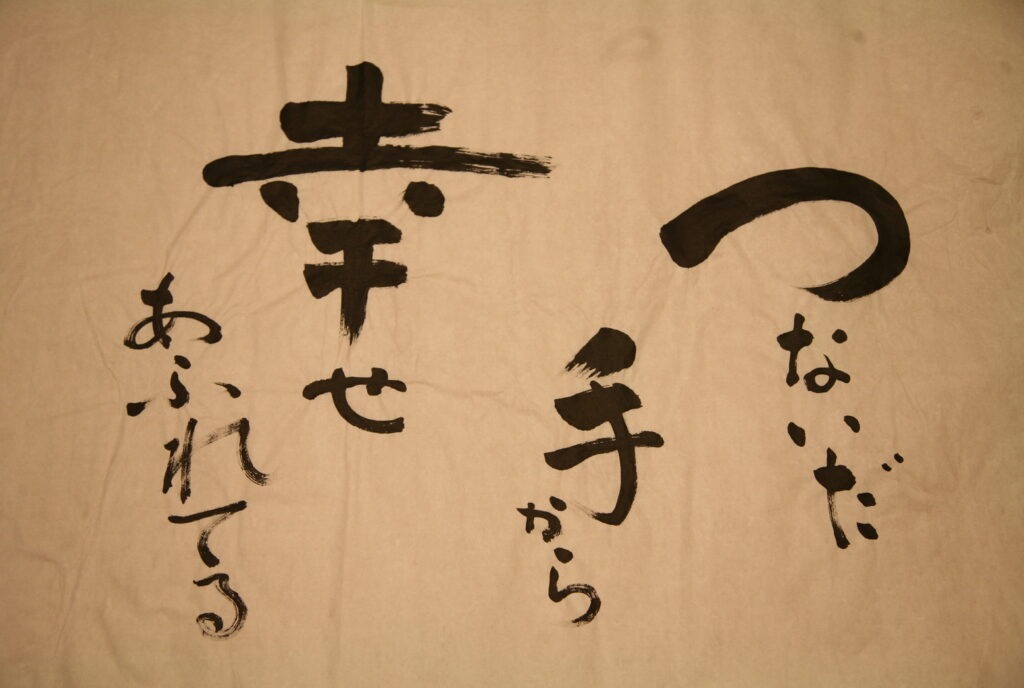 つないだ
手から
幸せ
あふれてる